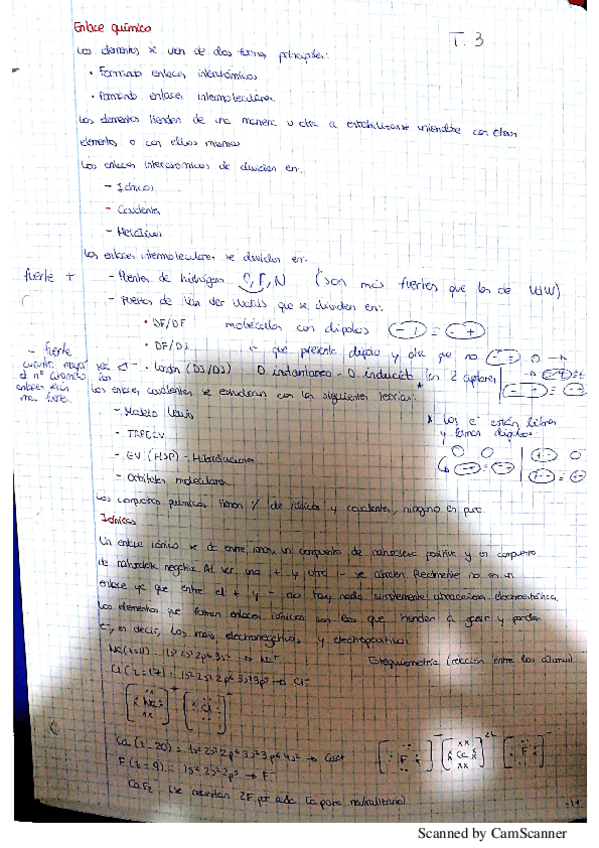 Enlace químico
T. 3
Los elementos se unen de dos formas principales:
• Formando enlaces interatómicos
• Formando enlaces intermoleculares.
Los elementos tienden de una manera u otra a estabilizarse uniendose con otros
elementos o con ellos mismos
Los enlaces interatomicos se dividen en:
- Iónicos
- Covalentes
- Metálicos
Los enlaces intermoleculares se dividen en:
fuerte +
- Puentes de hidrógeno O, F, N (son más fuertes que los de VdW)
- Fuerzas de Van der Waals que se dividen en:
• DF/DF moléculas con dipolos
• DF/DI - que presente dipolo y otra que no
- fuerte
• London (DI/DI) D. instantaneo - D. inducido
Los enlaces covalentes se estudiaran con las siguientes teorias:
* Los e⁻ están libres
y forman dipolos
- Modelo Lewis
- TRPECV
- EV - Hibridaciones
- Orbitales moleculares
Los compuestos químicos tienen % de iónicos y covalentes, ninguno es puro
Iónicos
Un enlace iónico se da entre iones, un compuesto de naturaleza positiva y un compuesto
de naturaleza negativa. Al ser uno + y otro - se atraen. Realmente no es un
enlace ya que entre el + y - no hay nada simplemente atracciones electrostática.
Los elementos que forman enlaces iónicos son los que tienden a ganar y perder
e⁻, es decir, los más electronegativos y electropositivos.
Na (z=11) = 1s² 2s² 2p⁶ 3s¹ → Na⁺
Estequiometría (relación entre los átomos)
Cl (z=17) = 1s² 2s² 2p⁶ 3s² 3p⁵ → Cl⁻
[Na]⁺ [Cl]⁻
Ca (z=20) = 1s² 2s² 2p⁶ 3s² 3p⁶ 4s² → Ca²⁺
[F]⁻ [Ca]²⁺ [F]⁻
F (z=9) = 1s² 2s² 2p⁵ → F⁻
CaF₂ (se necesitan 2F por cada Ca para neutralizarlo)
Scanned by CamScanner